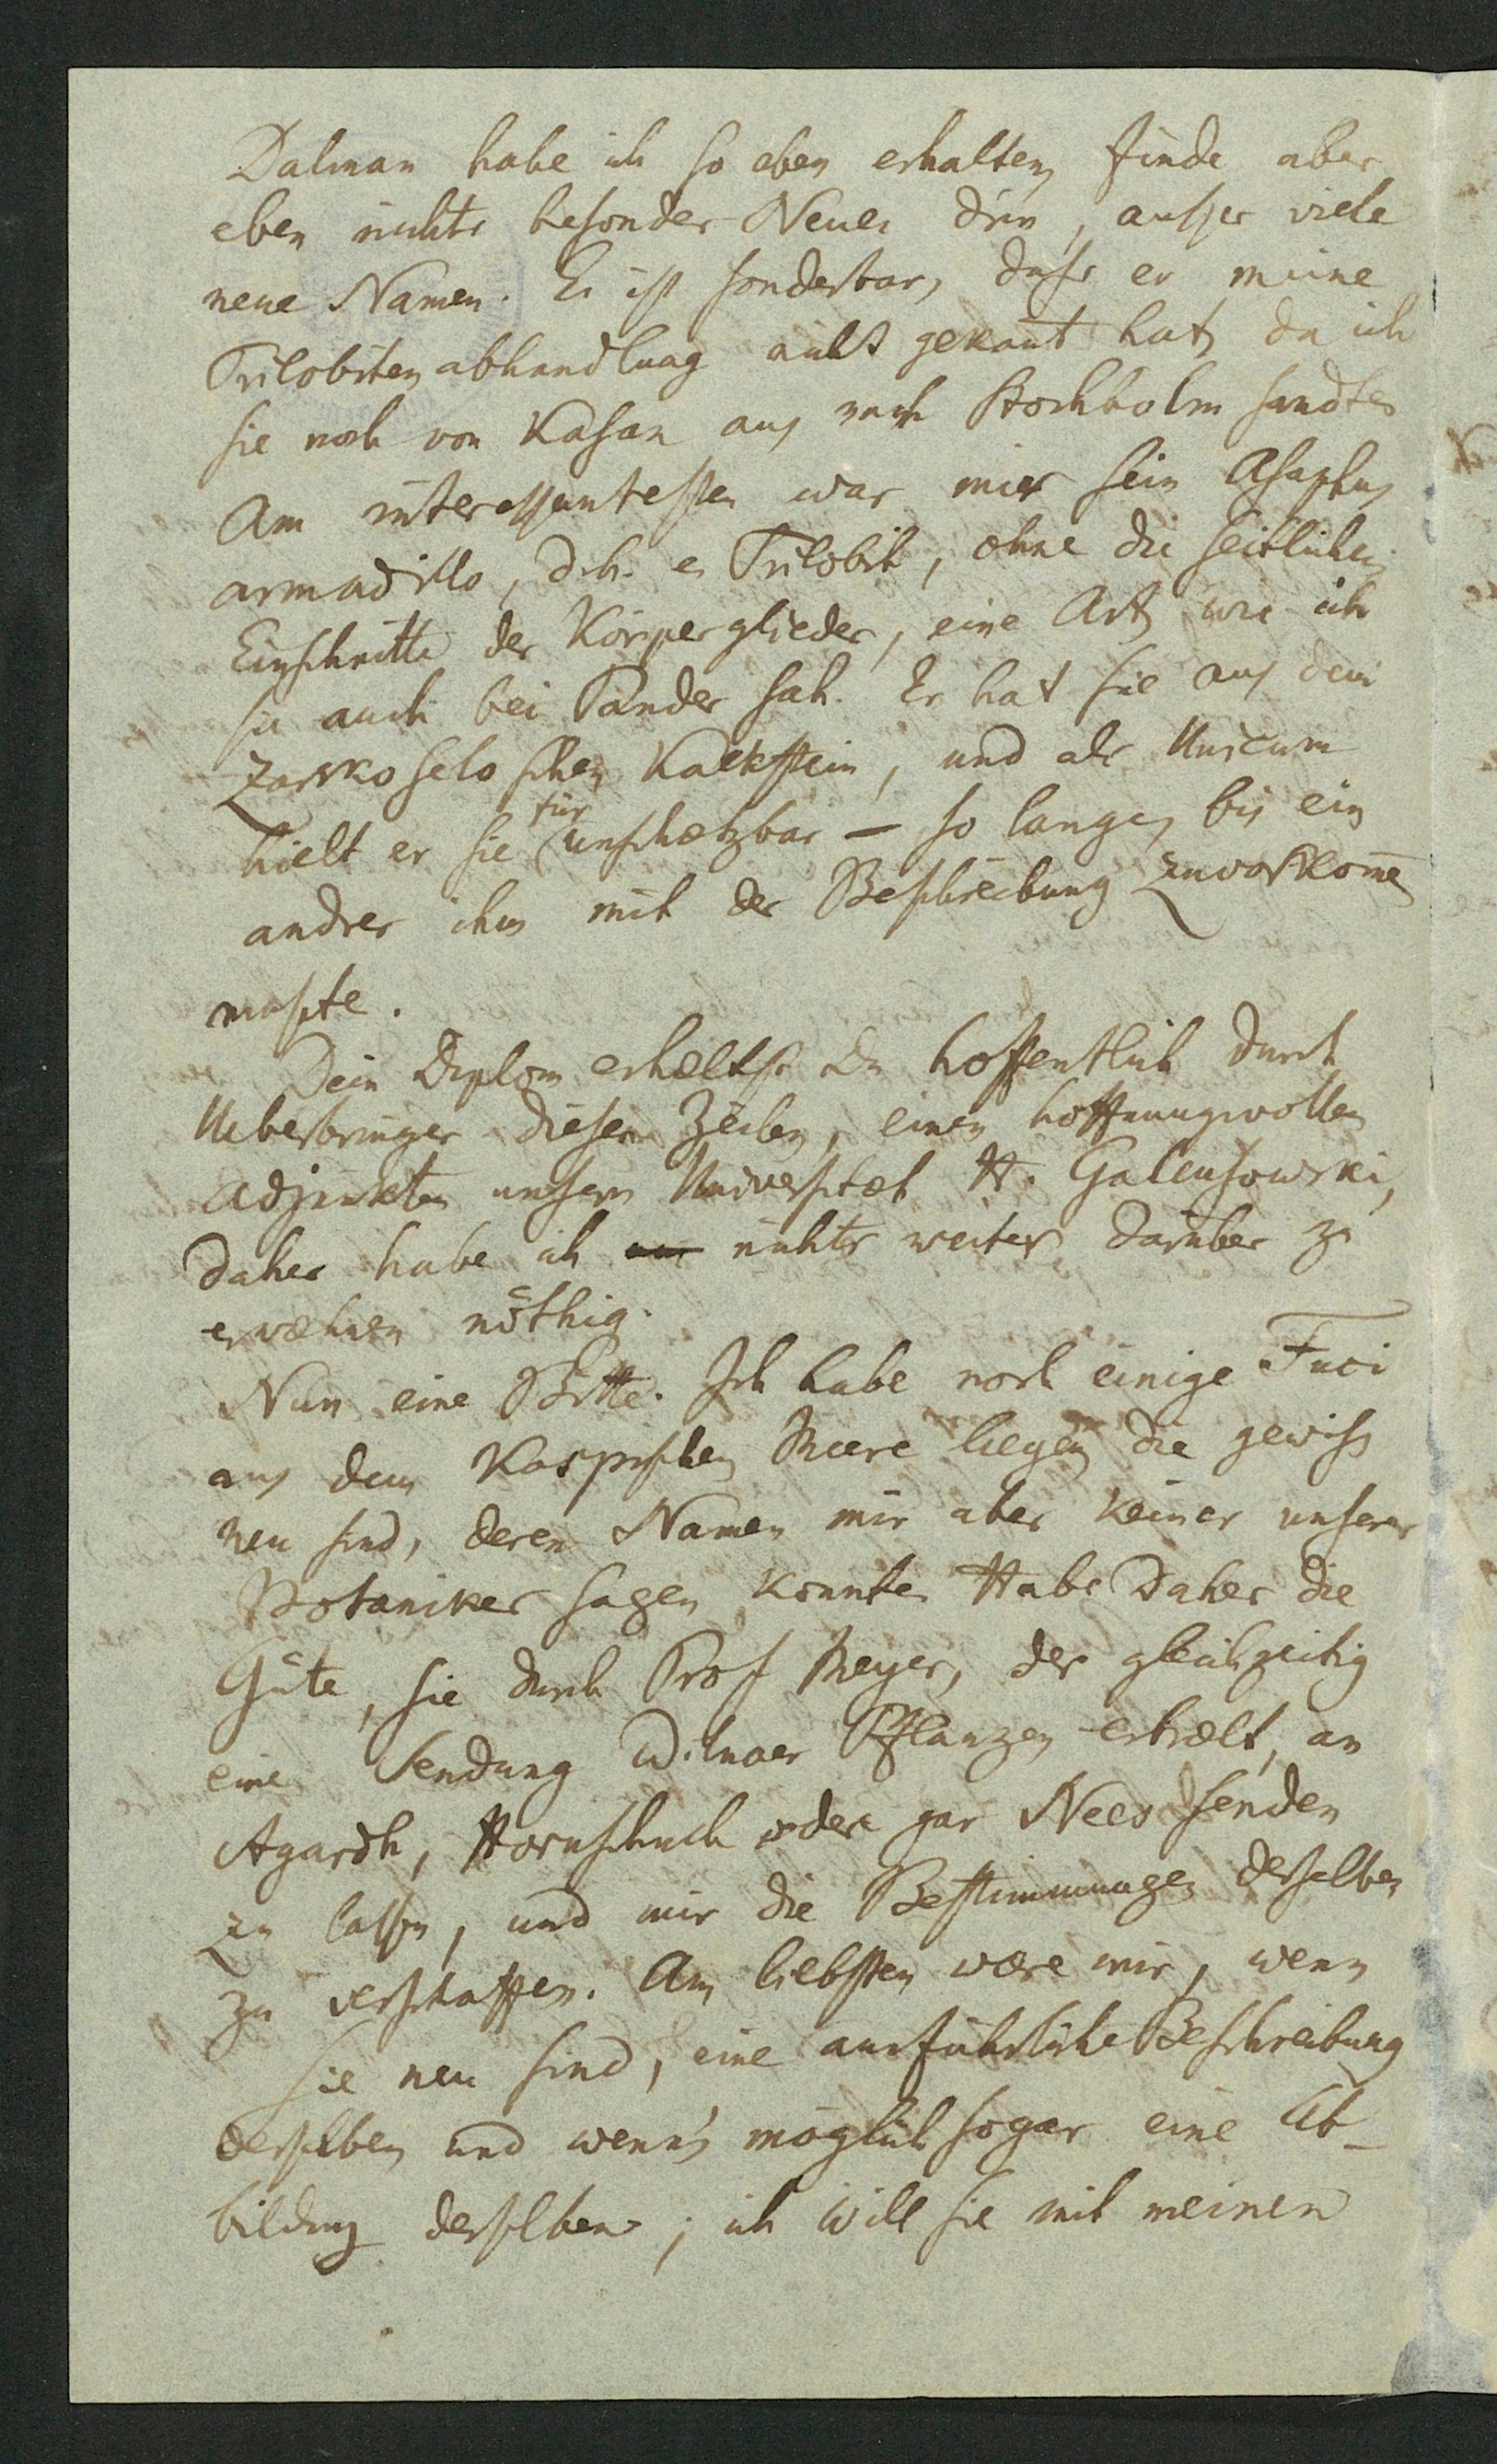 Dalman habe ich so eben erhalten, finde aber
eben nichts besonder Neues drin, ausser viele
neue Namen. Es ist sonderbar, dass er meine
Trilobitenabhandlung nicht gekannt hat, da ich
sie noch von Kasan aus nach Stockholm sandte.
Am interessantesten war mir sein Asaphus
armadillo, d.h. e Trilobit, ohne die seitlichen
Einschnitte der Körperglieder, eine Art, wie ich
sie auch bei Pander sah. Er hat sie aus dem
Zarskoseloschen Kalkstein, und als Unicum
für
hielt er sie unschætzbar – so lange, bis ein
andrer ihm mit der Beschreibung zuvorkom̅en
musste.
Dein Diplom erhæltst Du hoffentlich durch
Ueberbringer dieser Zeilen, einen hoffnungsvollen
Adjunkten unsrer Universitæt H. Galensowski,
daher habe ich nichts weiter darüber zu
erwæhnen nöthig.
Nun eine Bitte. Ich habe noch einige Fuci
aus dem Kaspischen Meere liegen, die gewiss
neu sind, deren Namen mir aber keiner unserer
Botaniker sagen konnte. Habe daher die
Güte, sie durch Prof Meyer, der gleichzeitig
eine Sendung Wilnaer Pflanzen erhælt, an
Agardh, Hornschuch oder gar Nees senden
zu lassen, und mir die Bestimmungen derselben
zu verschaffen. Am liebsten wære mir, wenn
sie neu sind, eine ausführliche Beschreibung
derselben und wenn's möglich sogar eine Ab-
bildung derselben; ich will sie mit meinen